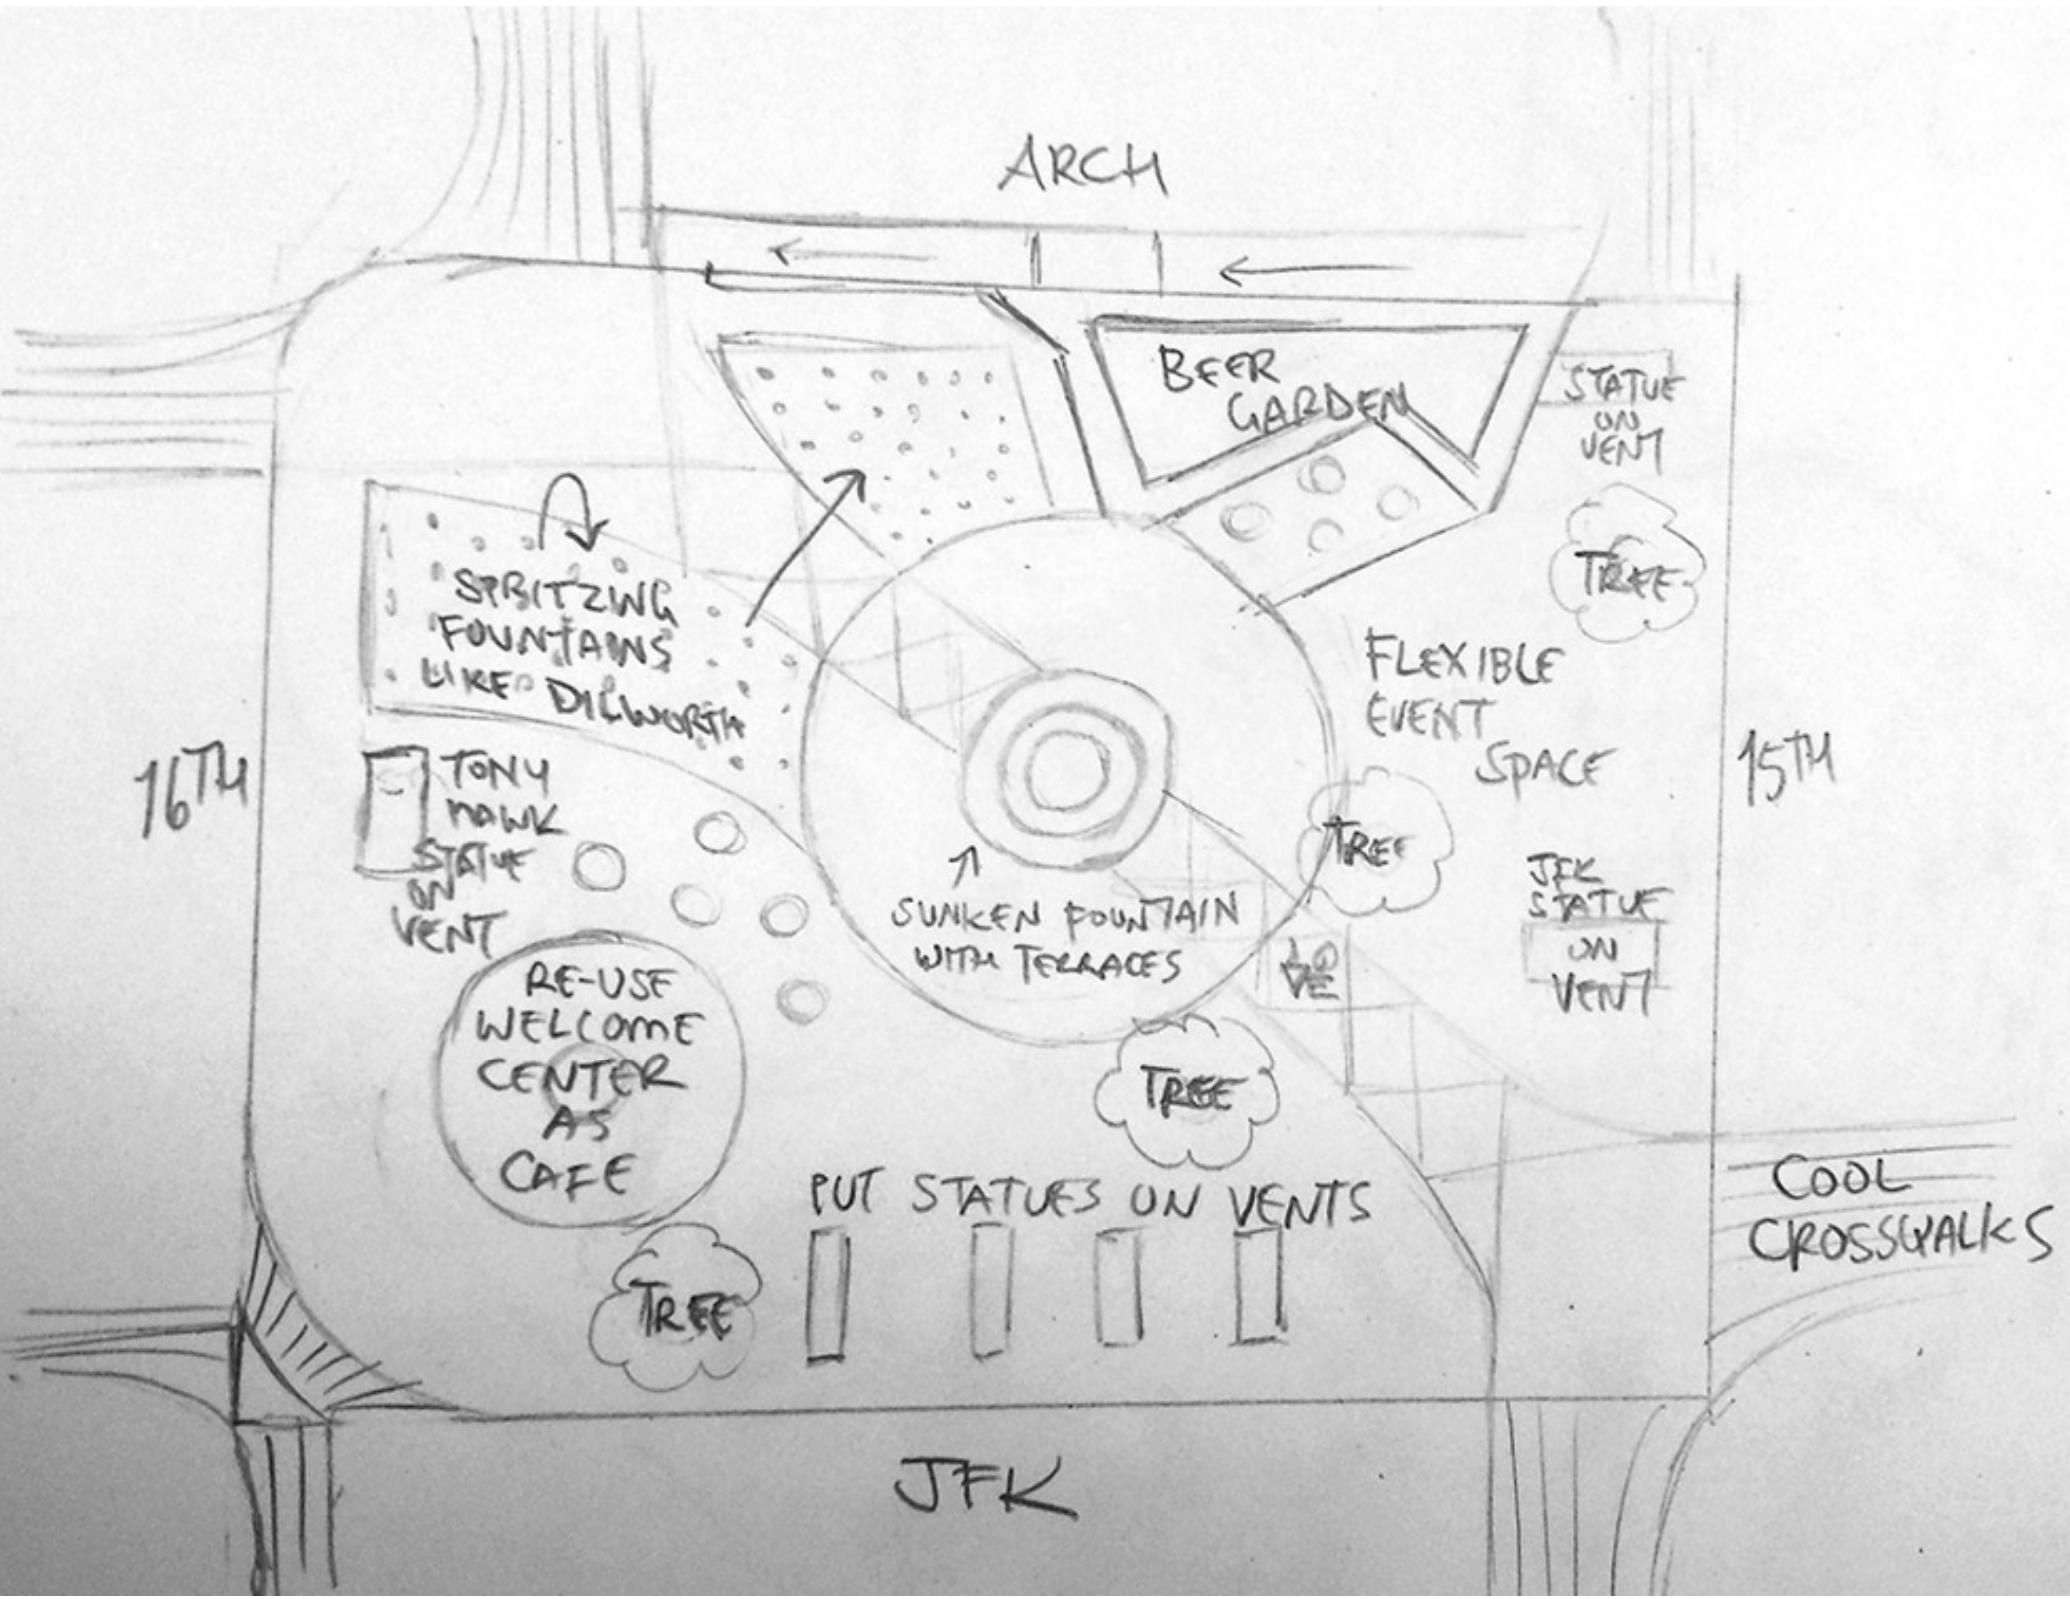 ARCH
BEER
GARDEN
STATUE
ON
VENT
TREE
SPRITZING
FOUNTAINS
LIKE DILWORTH
FLEXIBLE
EVENT
SPACE
16TH
15TH
TONY
HAWK
STATUE
ON
VENT
TREE
JFK
STATUE
ON
VENT
SUNKEN FOUNTAIN
WITH TERRACES
LO
VE
RE-USE
WELCOME
CENTER
AS
CAFE
TREE
PUT STATUES ON VENTS
COOL
CROSSWALKS
TREE
JFK